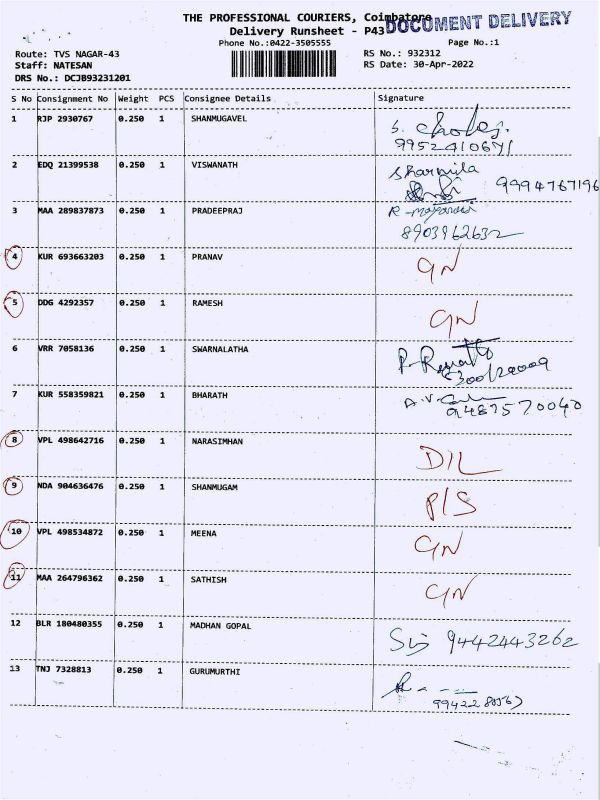 THE PROFESSIONAL COURIERS, Coimbatore
DOCUMENT DELIVERY
Delivery Runsheet - P43
Phone No.:0422-3505555
Page No.:1
Route: TVS NAGAR-43
RS No.: 932312
Staff: NATESAN
RS Date: 30-Apr-2022
DRS No.: DCJB93231201
S No Consignment No Weight PCS Consignee Details Signature
1 RJP 2930767 0.250 1 SHANMUGAVEL
9952410671
2 EDQ 21399538 0.250 1 VISWANATH Sharmila
9994767196
3 MAA 289837873 0.250 1 PRADEEPRAJ
8903962632
4 KUR 693663203 0.250 1 PRANAV GN
5 DDG 4292357 0.250 1 RAMESH GN
6 VRR 7058136 0.250 1 SWARNALATHA
7 KUR 558359821 0.250 1 BHARATH
9487570040
8 VPL 498642716 0.250 1 NARASIMHAN D/L
9 NDA 904636476 0.250 1 SHANMUGAM P/S
10 VPL 498534872 0.250 1 MEENA GN
11 MAA 264796362 0.250 1 SATHISH GN
12 BLR 180480355 0.250 1 MADHAN GOPAL 9442443262
13 TNJ 7328813 0.250 1 GURUMURTHI